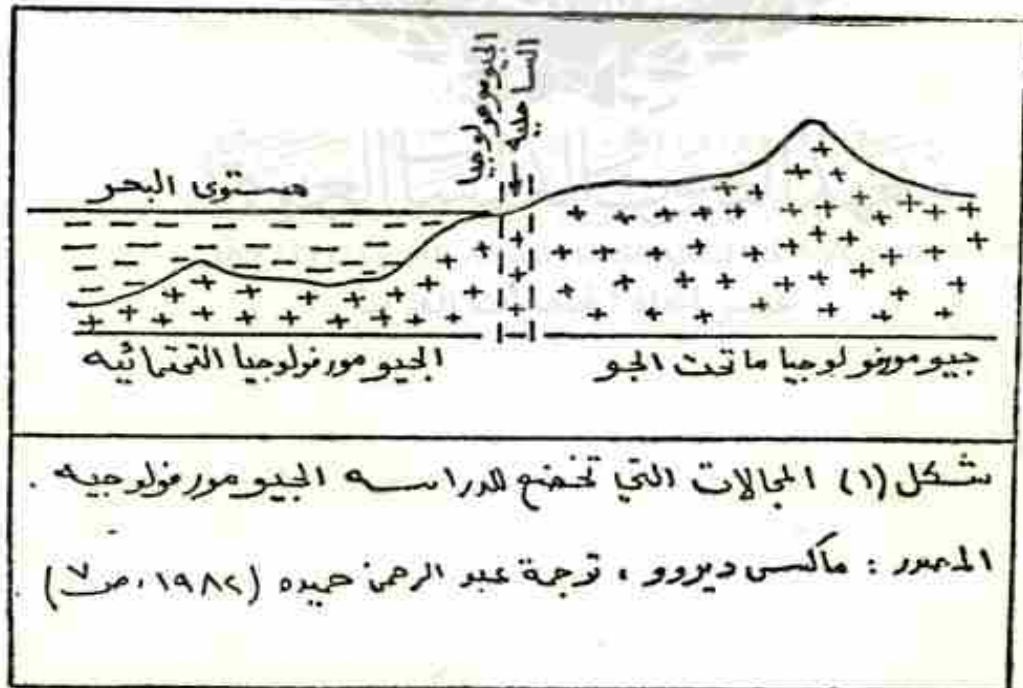 الجيومورفولوجيا
الساحليه
مستوى البحر
جيومورفولوجيا ماتحت الجو
الجيومورفولوجيا التحتمائيه
شكل (١) المجالات التي تخضع للدراسه الجيومورفولوجيه .
المصدر : ماكس ديروو ، ترجمة عبد الرحمن حميده (١٩٨٢ ، ص ٧)